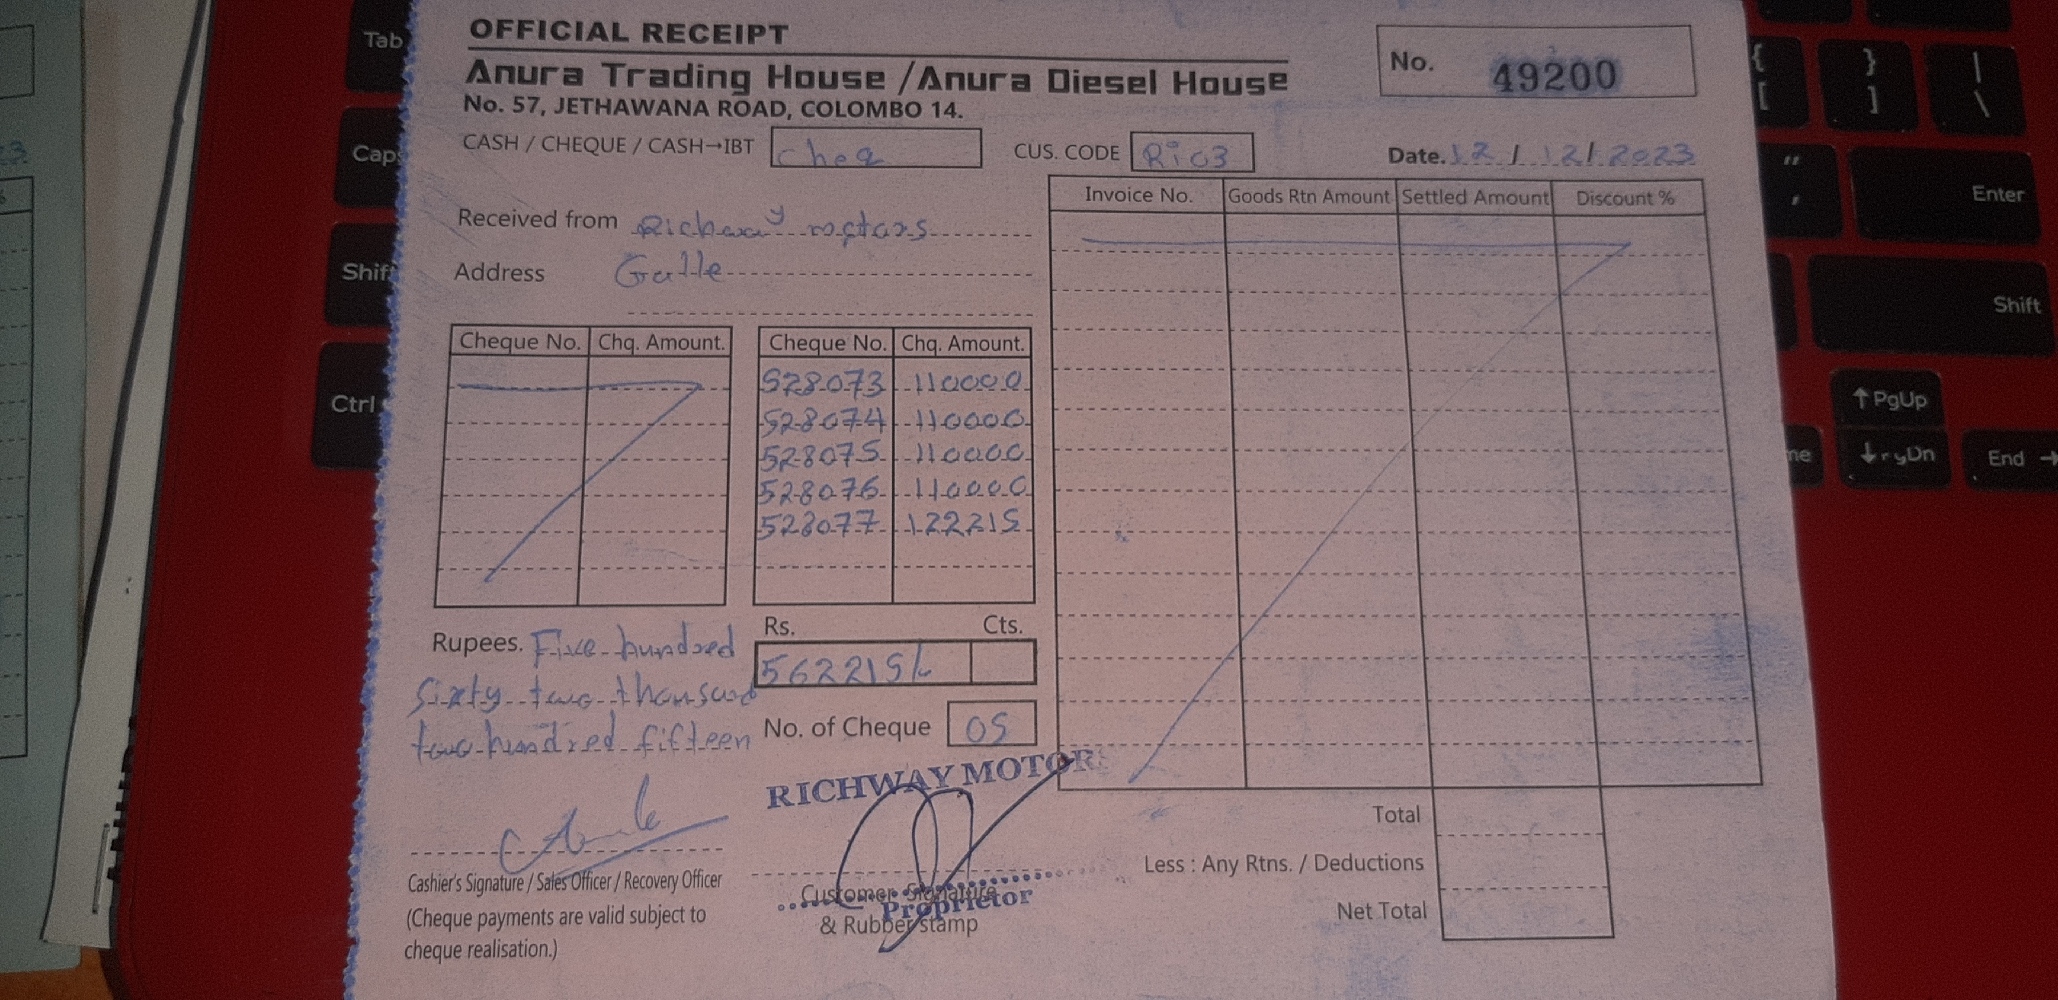 OFFICIAL RECEIPT
Anura Trading House / Anura Diesel House
No. 57, JETHAWANA ROAD, COLOMBO 14.
No. 49200
CASH / CHEQUE / CASH→IBT cheq
CUS. CODE Ric3
Date. 12 / 12 / 2023
Received from Richway motors
Address Galle
Cheque No. Chq. Amount.
Cheque No. Chq. Amount.
528073 110000
528074 110000
528075 110000
528076 110000
528077 122215
Invoice No. Goods Rtn Amount Settled Amount Discount %
Rupees. Five hundred
sixty two thousand
two hundred fifteen
Rs. Cts.
562215/-
No. of Cheque 05
RICHWAY MOTORS
Proprietor
Cashier's Signature / Sales Officer / Recovery Officer
(Cheque payments are valid subject to
cheque realisation.)
Customer Signature
& Rubber stamp
Total
Less : Any Rtns. / Deductions
Net Total
Tab
Caps
Shift
Ctrl
{
[
}
]
|
\
"
'
Enter
Shift
↑ PgUp
End